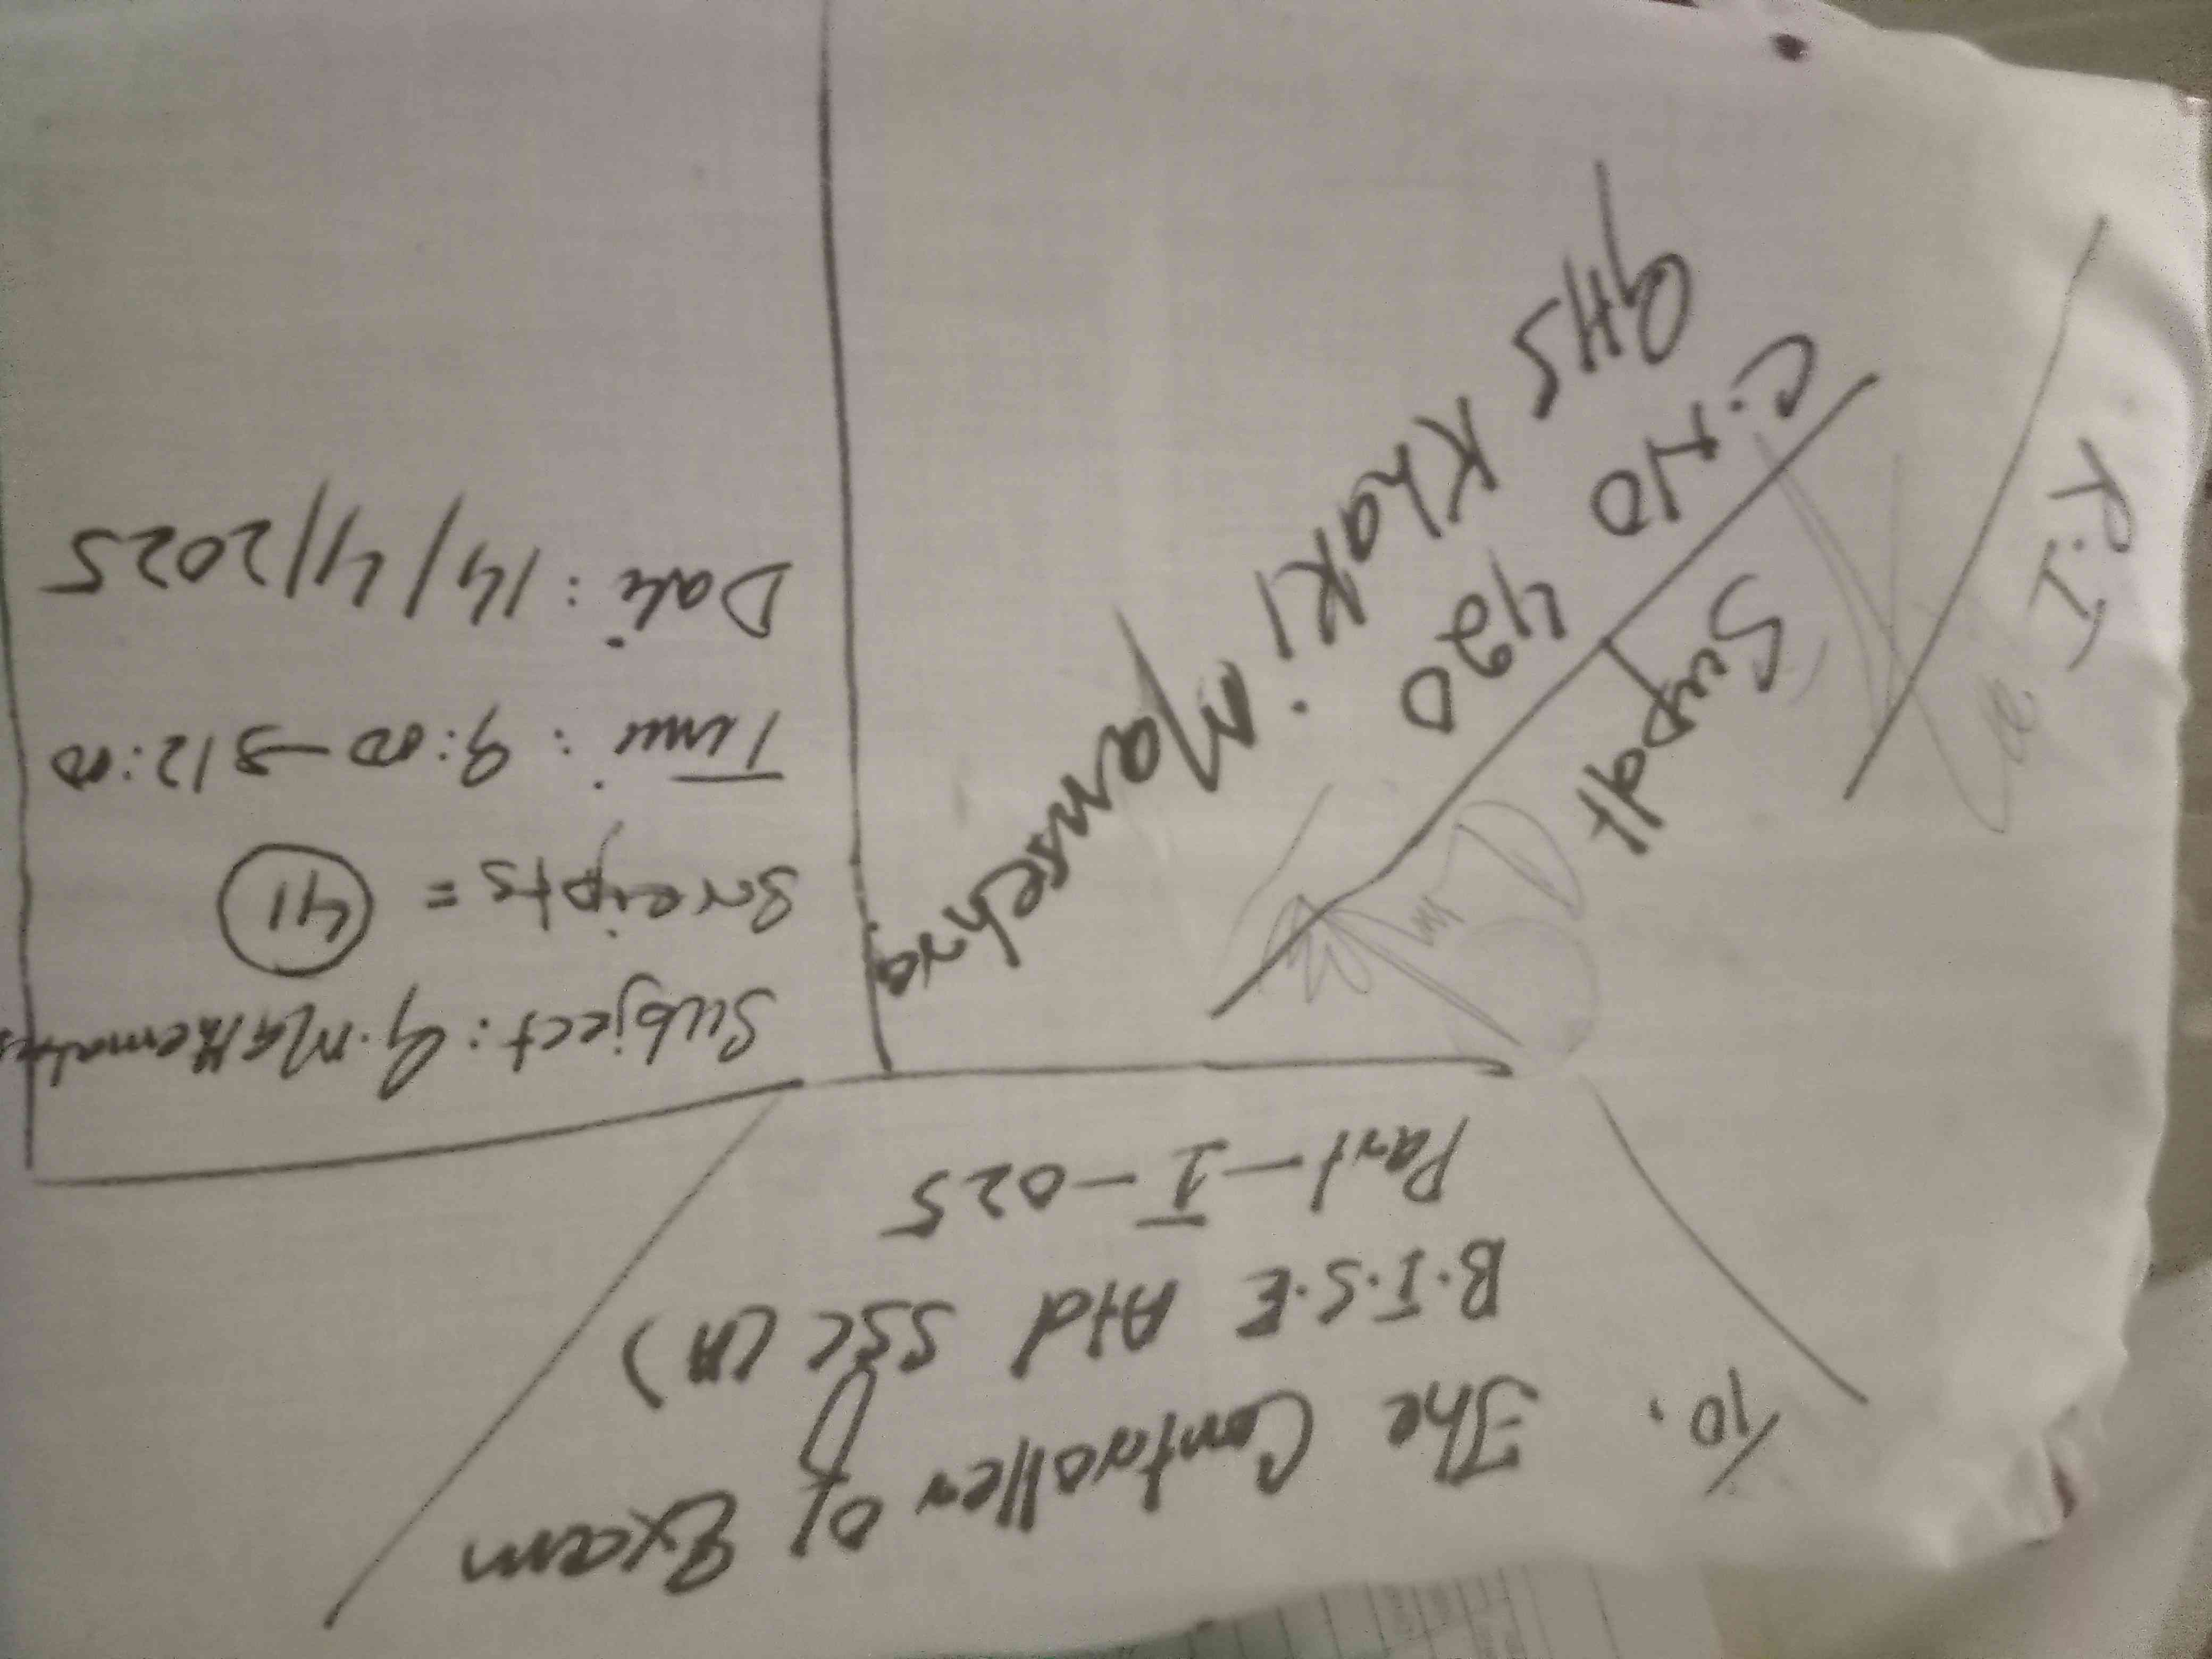 To,
The Controller of Exam
B.I.S.E Atd SSC (A)
Part-I-025
Subject: G.Mathematics
Screipts = 41
Time: 9:00 → 12:00
Date: 14/4/2025
C.No 420
GHS Khaki Mansehra
Supdt
R.I